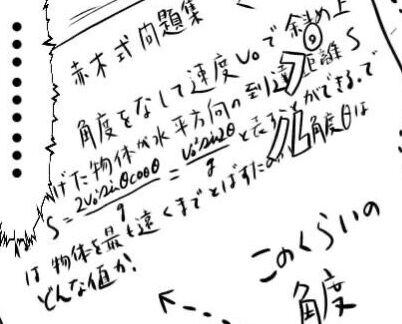 赤木式問題集
角度をなして速度v₀で斜め上
げた物体が水平方向の到達距離S
S = 2v₀²sinθcosθ/g = v₀²sin2θ/g と表すことができる。で
は物体を最も遠くまでとばすための角度θは
どんな値か?
このくらいの
角度